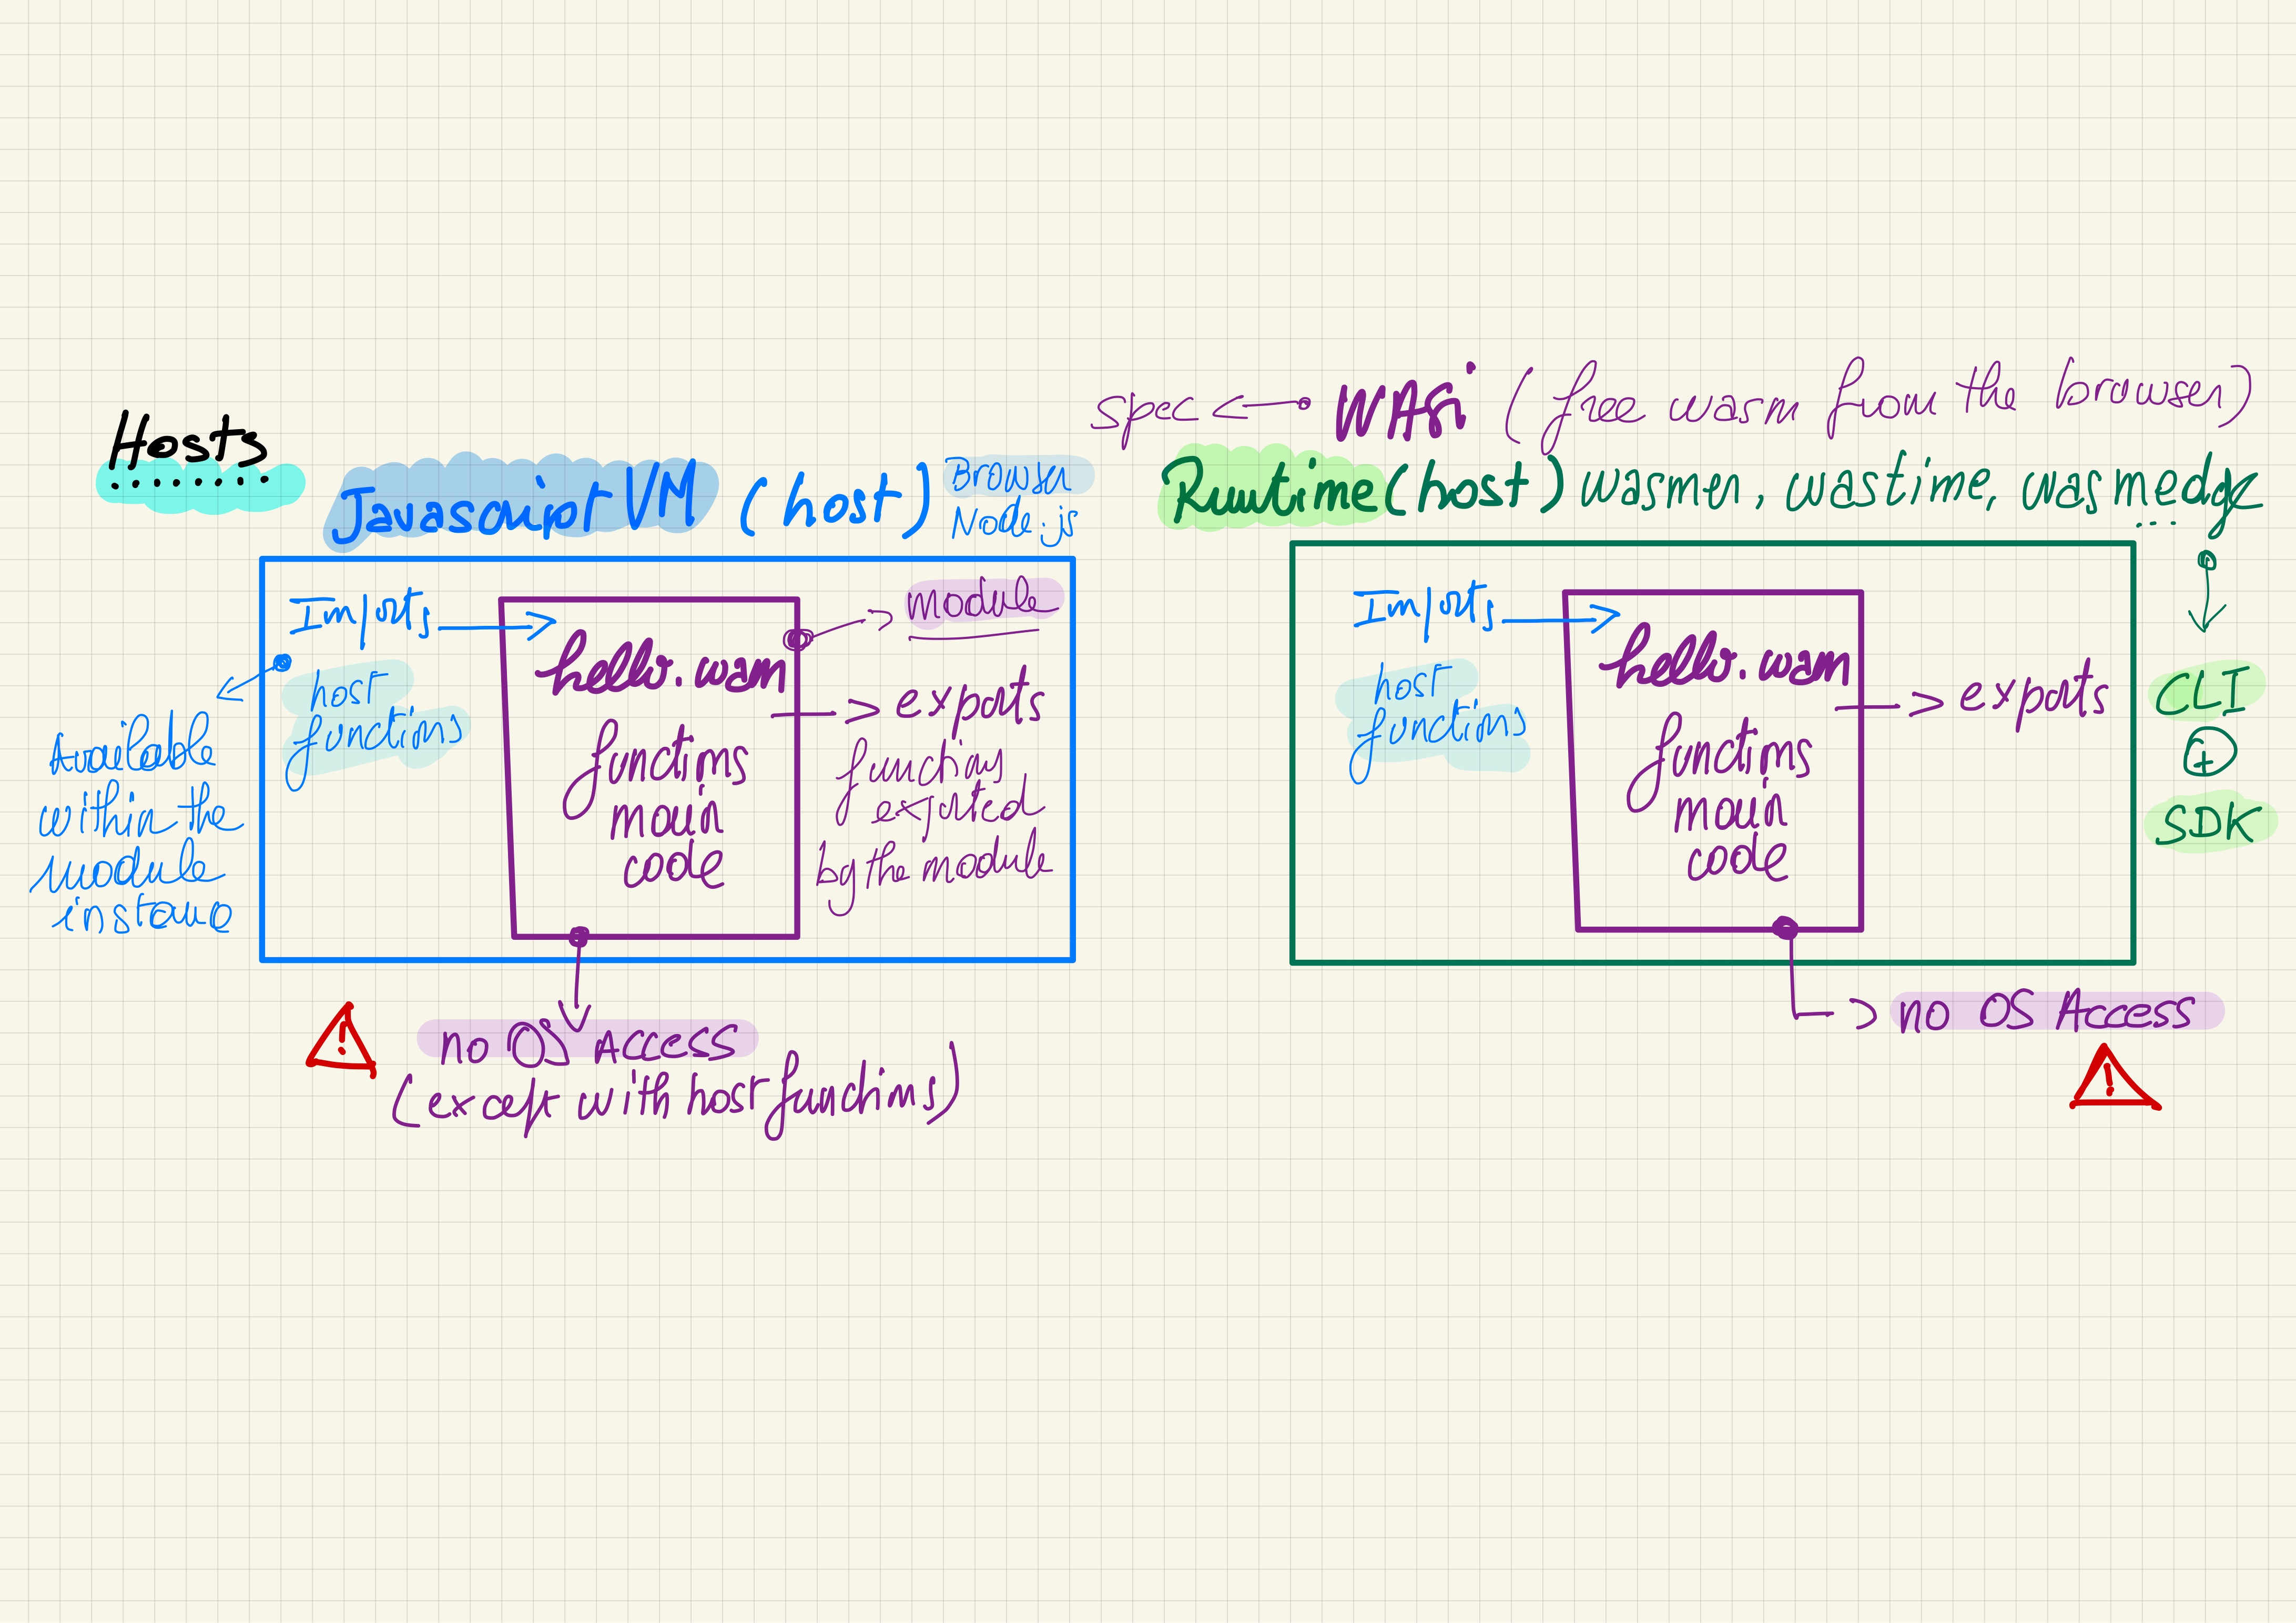 Hosts
Javascript VM (host)
Browser
Node.js
Imports
host
functions
Available
within the
module
instance
hello.wasm
functions
main
code
module
exports
functions
exported
by the module
no OS Access
(except with host functions)
spec WASi (free wasm from the browser)
Runtime (host) wasmer, wastime, wasmedge
...
Imports
host
functions
hello.wasm
functions
main
code
exports
CLI
+
SDK
no OS Access